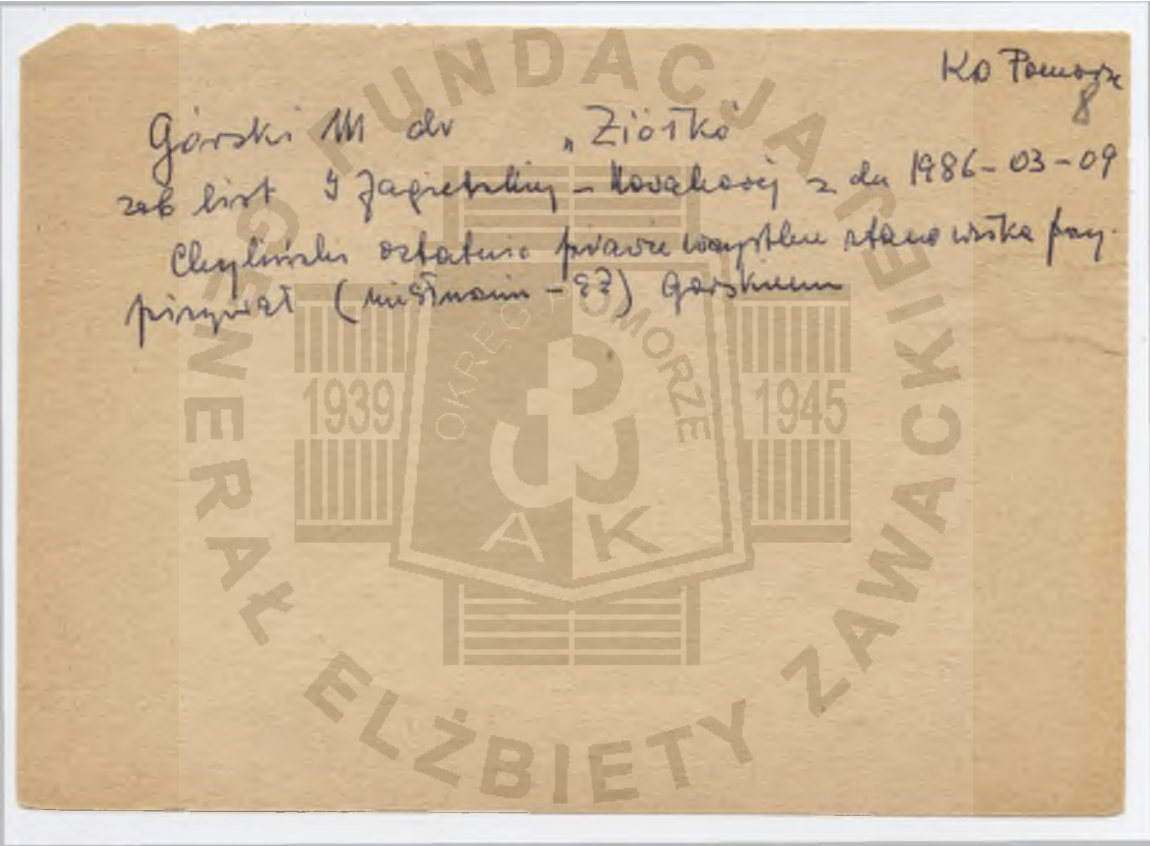 KO Pomorze
8
Górski M dr „Ziółko"
zob list J Jagielskiej - Nowakowej z dn 1986-03-09
Chyliński ostatnio prawie wszystkie stanowiska przy-
pisywał (niesłusznie - EZ) Górskiemu
FUNDACJA
GENERAŁ ELŻBIETY ZAWACKIEJ
OKRĘG POMORZE
1939
1945
A K